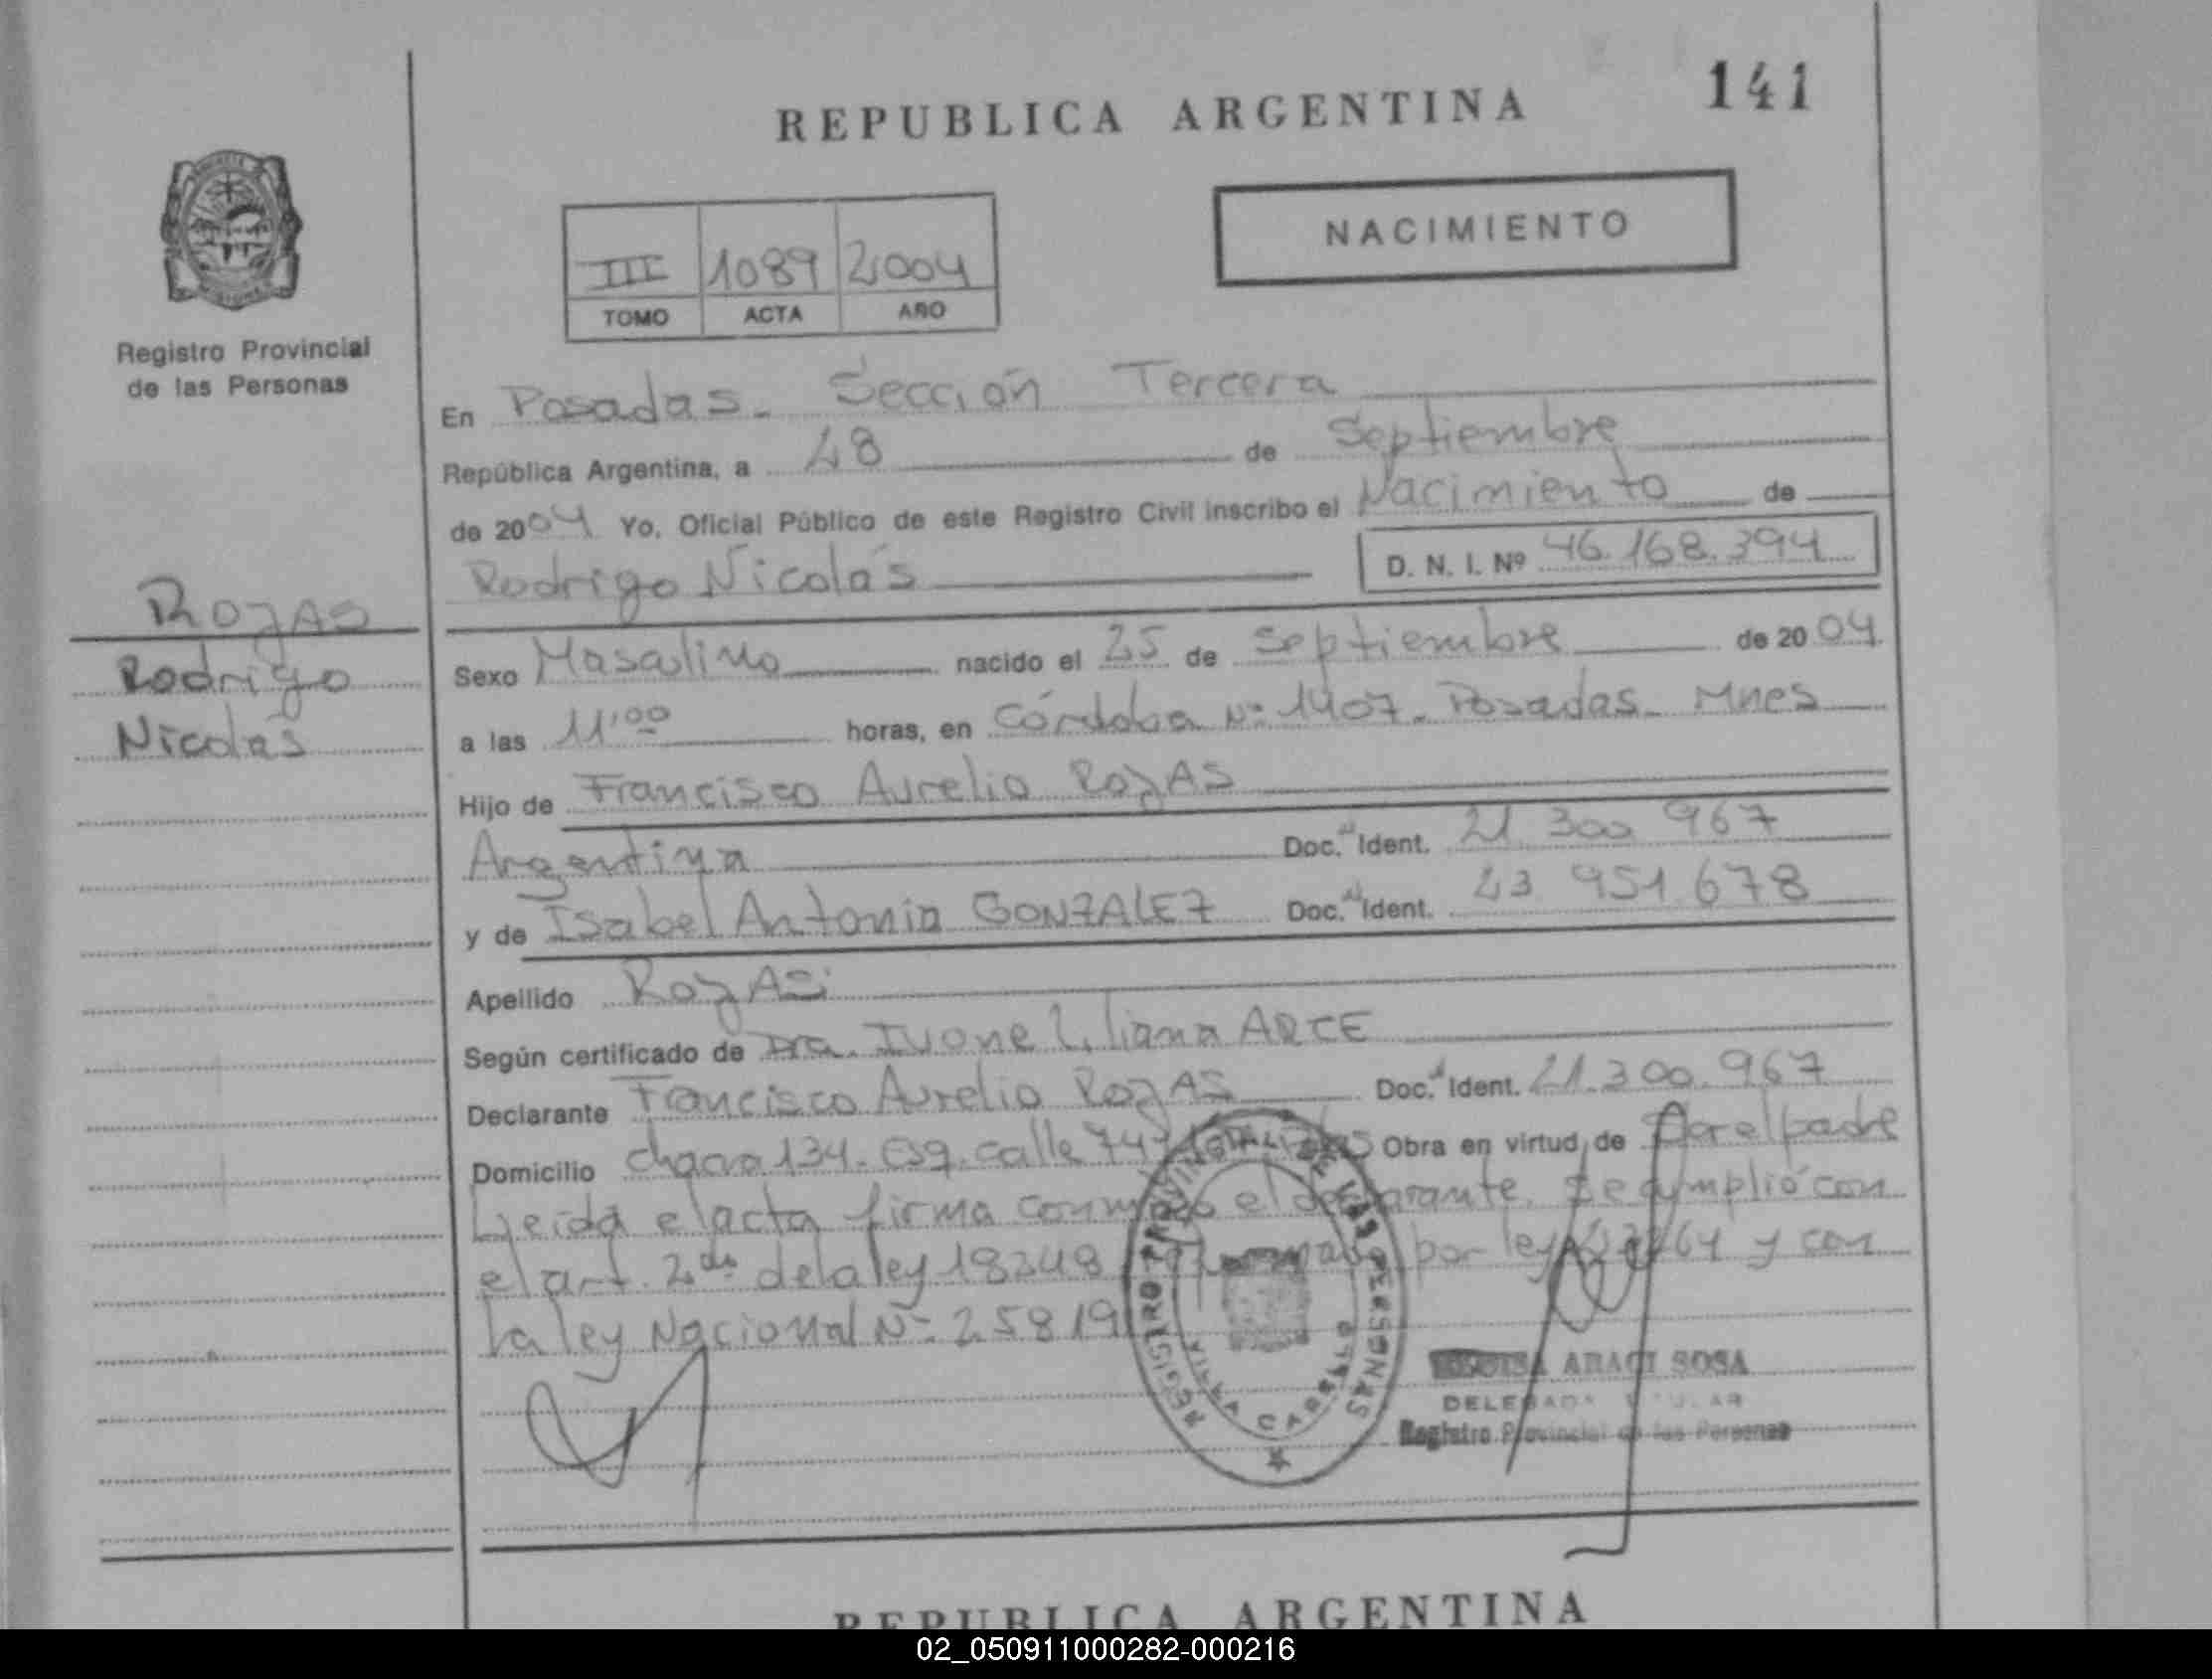 141
REPUBLICA ARGENTINA
NACIMIENTO
III 1089 2004
TOMO ACTA AÑO
Registro Provincial
de las Personas
En Posadas. Sección Tercera
República Argentina, a 28 de Septiembre
de 2004 Yo, Oficial Público de este Registro Civil inscribo el Nacimiento de
Rodrigo Nicolás D. N. I. Nº 46.168.394
ROJAS
Rodrigo
Nicolás
Sexo Masculino nacido el 25 de Septiembre de 2004
a las 11'00 horas, en Córdoba Nº 1407. Posadas. Mnes
Hijo de Francisco Aurelio ROJAS
Argentina Doc. Ident. 21 300 967
y de Isabel Antonia GONZALEZ Doc. Ident. 23 951 678
Apellido ROJAS
Según certificado de Dra. Ivone Liliana ARCE
Declarante Francisco Aurelio ROJAS Doc. Ident. 21.300.967
Domicilio chacra 134. esq. calle Obra en virtud de Ser el padre
Leída el acta firma conmigo el declarante. Se cumplió con
el art. 2do de la ley 18248 por ley y con
la ley Nacional Nº 25819
REGISTRO PROVINCIAL DE LAS PERSONAS
VILLA CABELLO
ARACI SOSA
DELEGADA TITULAR
Registro Provincial de las Personas
REPUBLICA ARGENTINA
02_050911000282-000216